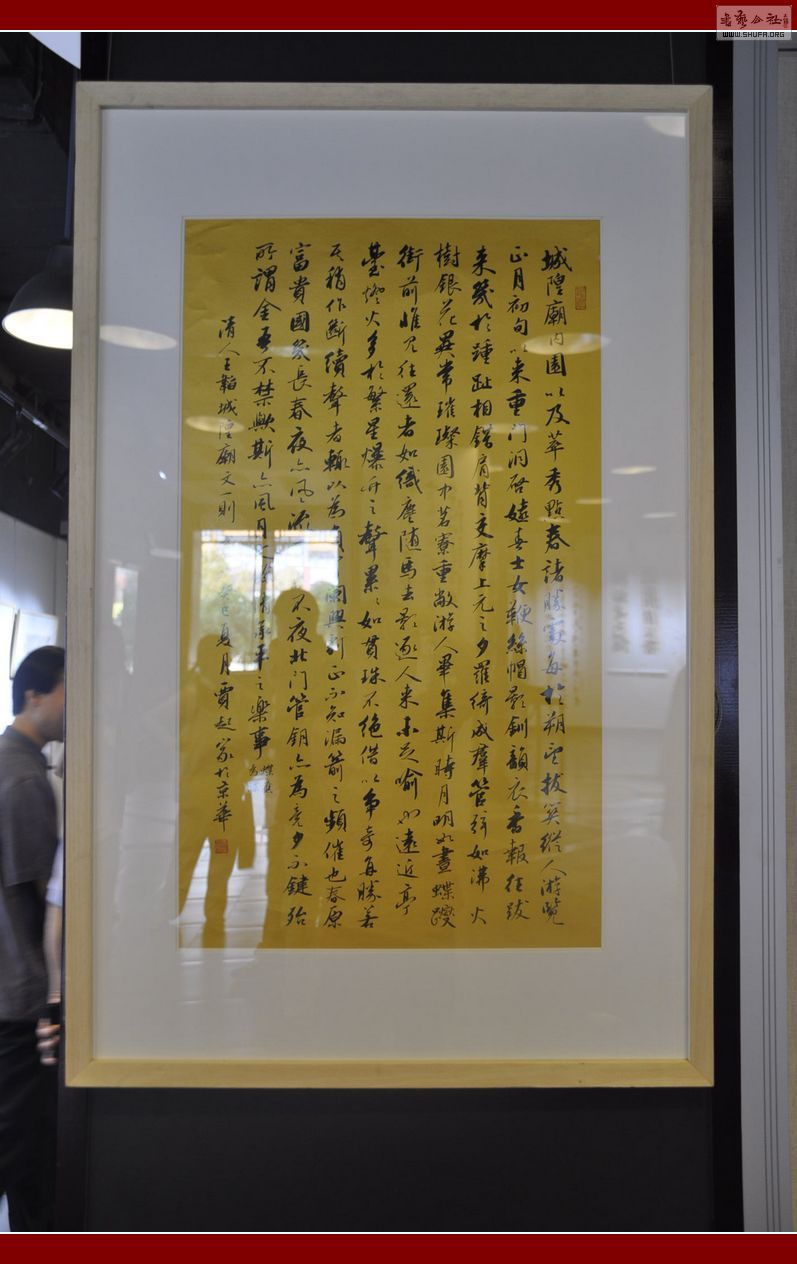 城隍廟内園以及萃秀點春諸勝處每於朔望拔縱人游覽
正月初旬以来重門洞啓嬉春士女鞭絲帽影釧韻衣香報往跋
来幾於踵趾相錯肩背交摩上元之夕羅綺成羣管弦如沸火
樹銀花異常璀璨園中茗寮重敞游人畢集斯時月明如晝蹀躞
街前惟見往還者如織塵随馬去影逐人来未足喻也遠近亭
臺燈火多於繁星爆竹之聲累累如貫珠不絶借以争奇角勝若
其稍作斷續聲者輒以為負興劇正不知漏箭之頻催也春原
富貴國家長春夜亦風流不夜北門管鑰亦為竟夕不鍵殆
所謂金吾不禁歟斯亦風月之情承平之樂事
清人王韜城隍廟文一則 癸巳夏月賈起家於京華
WWW.SHUFA.ORG